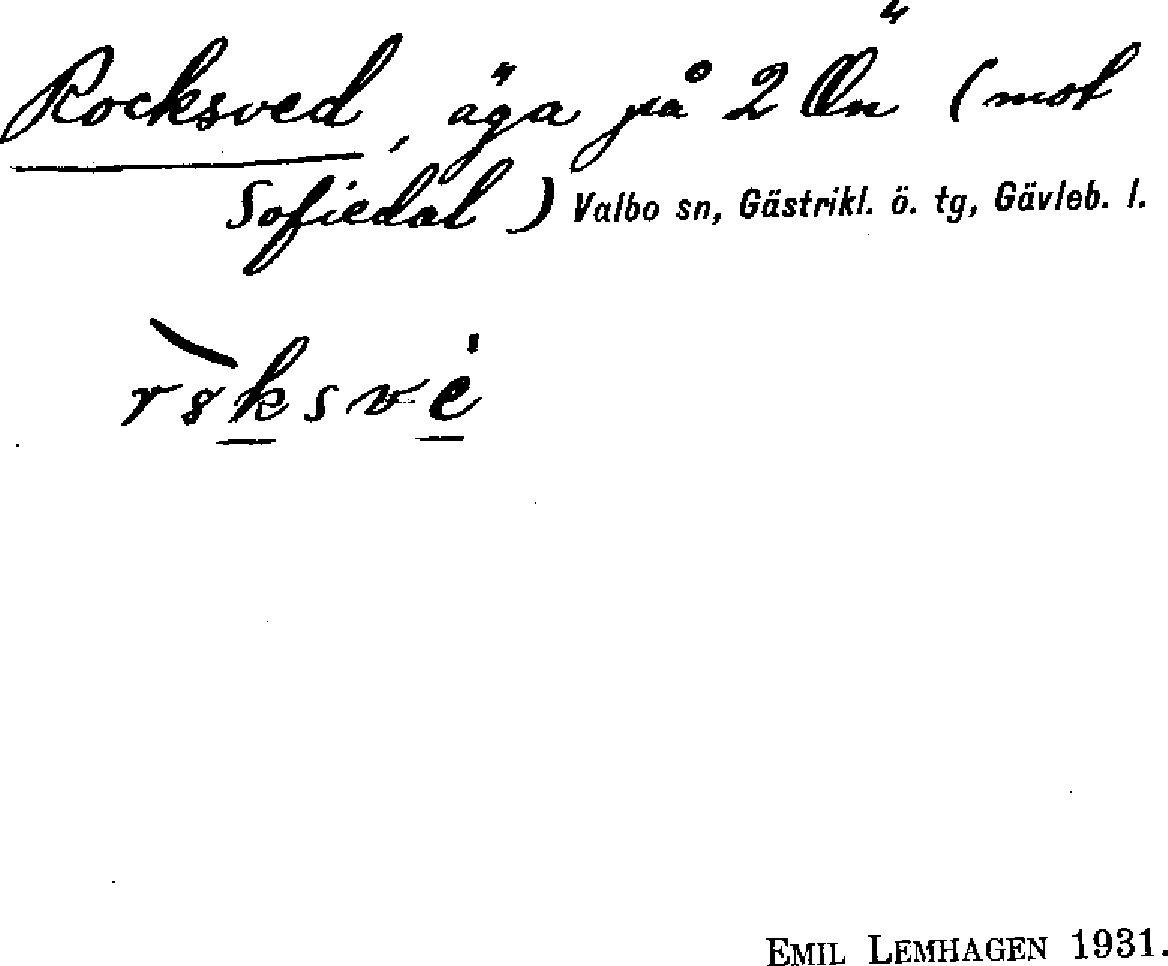 Rocksved, äga på 2 Ön (mot
Sofiedal) Valbo sn, Gästrikl. ö. tg, Gävleb. l.
EMIL LEMHAGEN 1931.